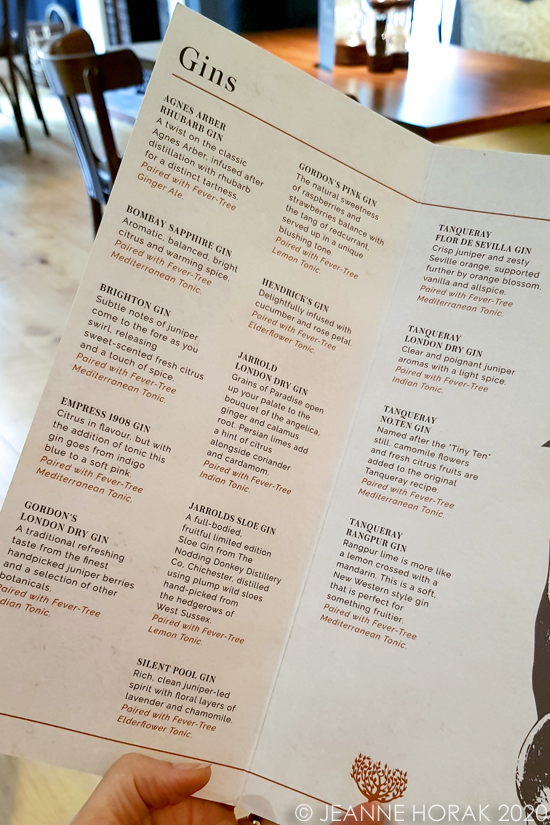 Gins
AGNES ARBER
RHUBARB GIN
A twist on the classic
Agnes Arber, infused after
distillation with rhubarb
for a distinct tartness.
Paired with Fever-Tree
Ginger Ale.
BOMBAY SAPPHIRE GIN
Aromatic, balanced, bright
citrus and warming spice.
Paired with Fever-Tree
Mediterranean Tonic.
BRIGHTON GIN
Subtle notes of juniper
come to the fore as you
swirl, releasing
sweet-scented fresh citrus
and a touch of spice.
Paired with Fever-Tree
Mediterranean Tonic.
EMPRESS 1908 GIN
Citrus in flavour, but with
the addition of tonic this
gin goes from indigo
blue to a soft pink.
Paired with Fever-Tree
Mediterranean Tonic.
GORDON'S
LONDON DRY GIN
A traditional refreshing
taste from the finest
handpicked juniper berries
and a selection of other
botanicals.
Paired with Fever-Tree
Indian Tonic.
GORDON'S PINK GIN
The natural sweetness
of raspberries and
strawberries balance with
the tang of redcurrant,
served up in a unique
blushing tone.
Paired with Fever-Tree
Lemon Tonic.
HENDRICK'S GIN
Delightfully infused with
cucumber and rose petal.
Paired with Fever-Tree
Elderflower Tonic.
JARROLD
LONDON DRY GIN
Grains of Paradise open
up your palate to the
bouquet of the angelica,
ginger and calamus
root. Persian limes add
a hint of citrus
alongside coriander
and cardamom.
Paired with Fever-Tree
Indian Tonic.
JARROLDS SLOE GIN
A full-bodied,
fruitful limited edition
Sloe Gin from The
Nodding Donkey Distillery
Co, Chichester, distilled
using plump wild sloes
hand-picked from
the hedgerows of
West Sussex.
Paired with Fever-Tree
Lemon Tonic.
SILENT POOL GIN
Rich, clean juniper-led
spirit with floral layers of
lavender and chamomile.
Paired with Fever-Tree
Elderflower Tonic.
TANQUERAY
FLOR DE SEVILLA GIN
Crisp juniper and zesty
Seville orange, supported
further by orange blossom,
vanilla and allspice.
Paired with Fever-Tree
Mediterranean Tonic.
TANQUERAY
LONDON DRY GIN
Clear and poignant juniper
aromas with a light spice.
Paired with Fever-Tree
Indian Tonic.
TANQUERAY
NO.TEN GIN
Named after the "Tiny Ten"
still, camomile flowers
and fresh citrus fruits are
added to the original
Tanqueray recipe.
Paired with Fever-Tree
Mediterranean Tonic.
TANQUERAY
RANGPUR GIN
Rangpur lime is more like
a lemon crossed with a
mandarin. This is a soft,
New Western style gin
that is perfect for
something fruitier.
Paired with Fever-Tree
Mediterranean Tonic.
© JEANNE HORAK 2020